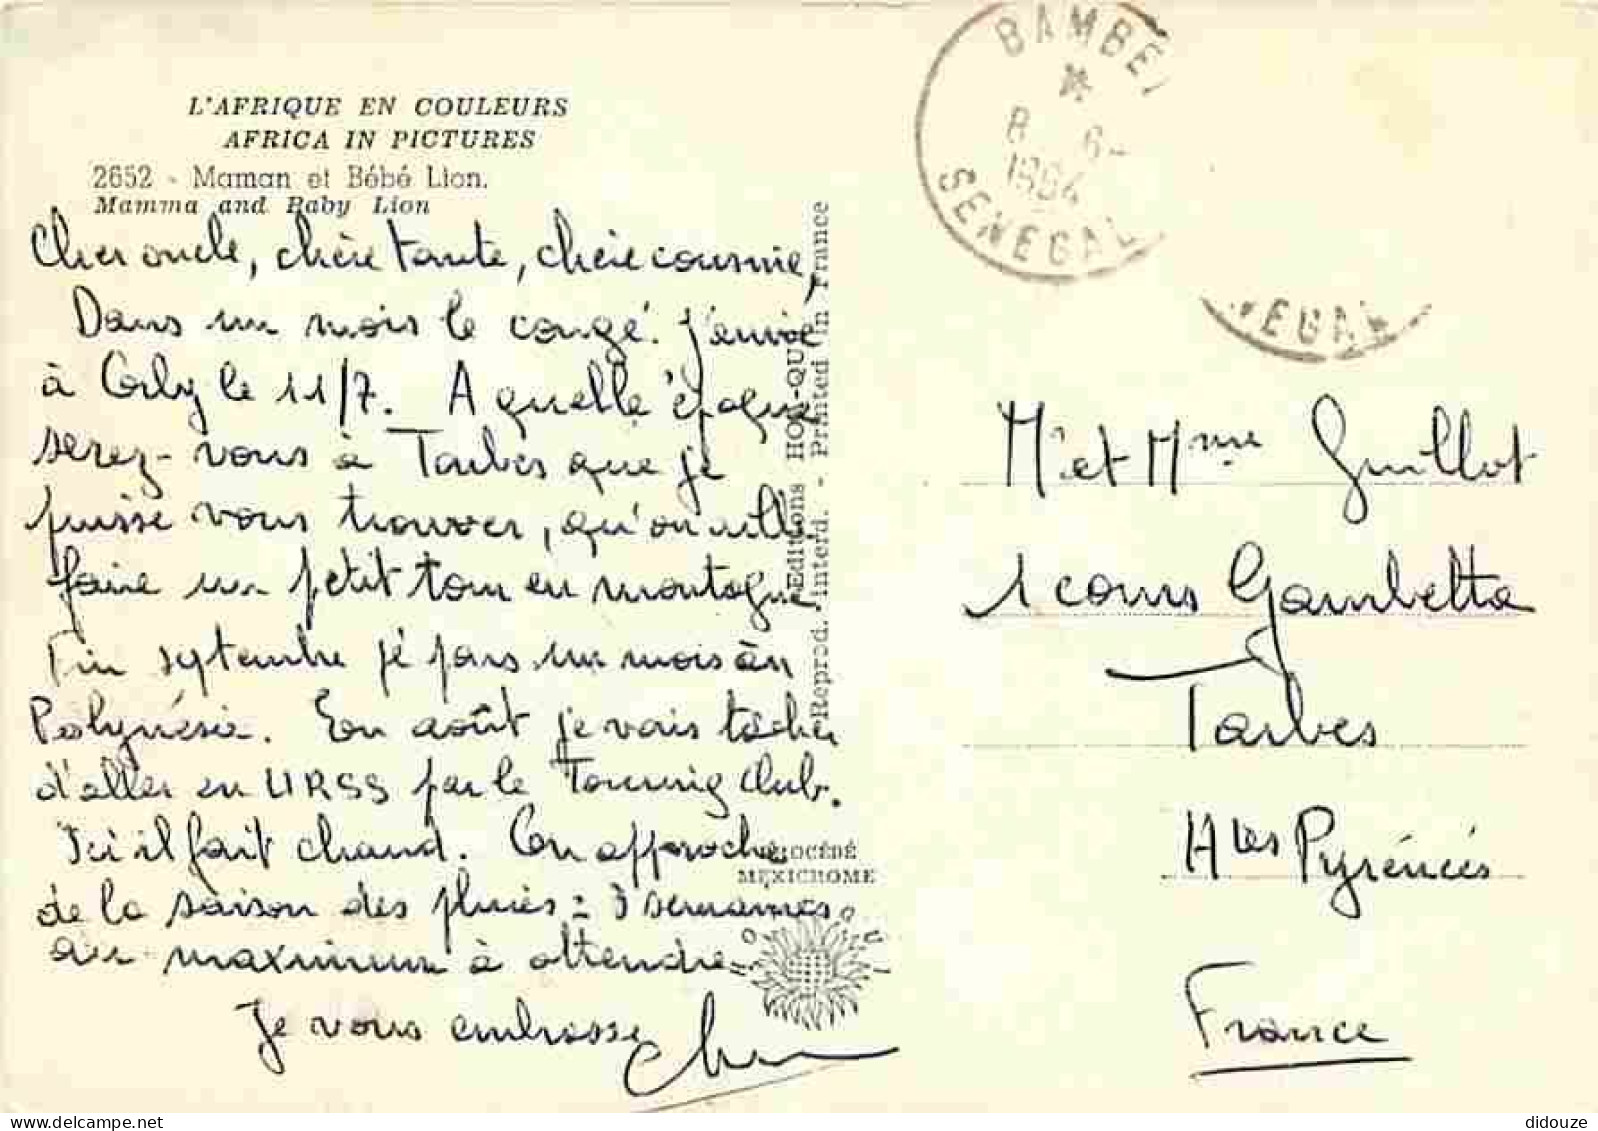 L'AFRIQUE EN COULEURS
AFRICA IN PICTURES
2652 - Maman et Bébé Lion.
Mamma and Baby Lion
Cher oncle, chère tante, chère cousine,
Dans un mois le congé. J'arrive
à Orly le 11/7. A quelle époque
serez-vous à Tarbes que je
puisse vous trouver, qu'on aille
faire un petit tour en montagne
Fin septembre je pars un mois en
Polynésie. En août je vais tâcher
d'aller en URSS par le Touring Club.
Ici il fait chaud. On approche
de la saison des pluies : 3 semaines
au maximum à attendre
Je vous embrasse
Editions HOA-QUI
Reprod. interd. - Printed in France
MEXICHROME
BAMBEY
8 6
1964
SENEGAL
NEGAL
Mr et Mme Guillot
1 cours Gambetta
Tarbes
Htes Pyrénées
France
didouze